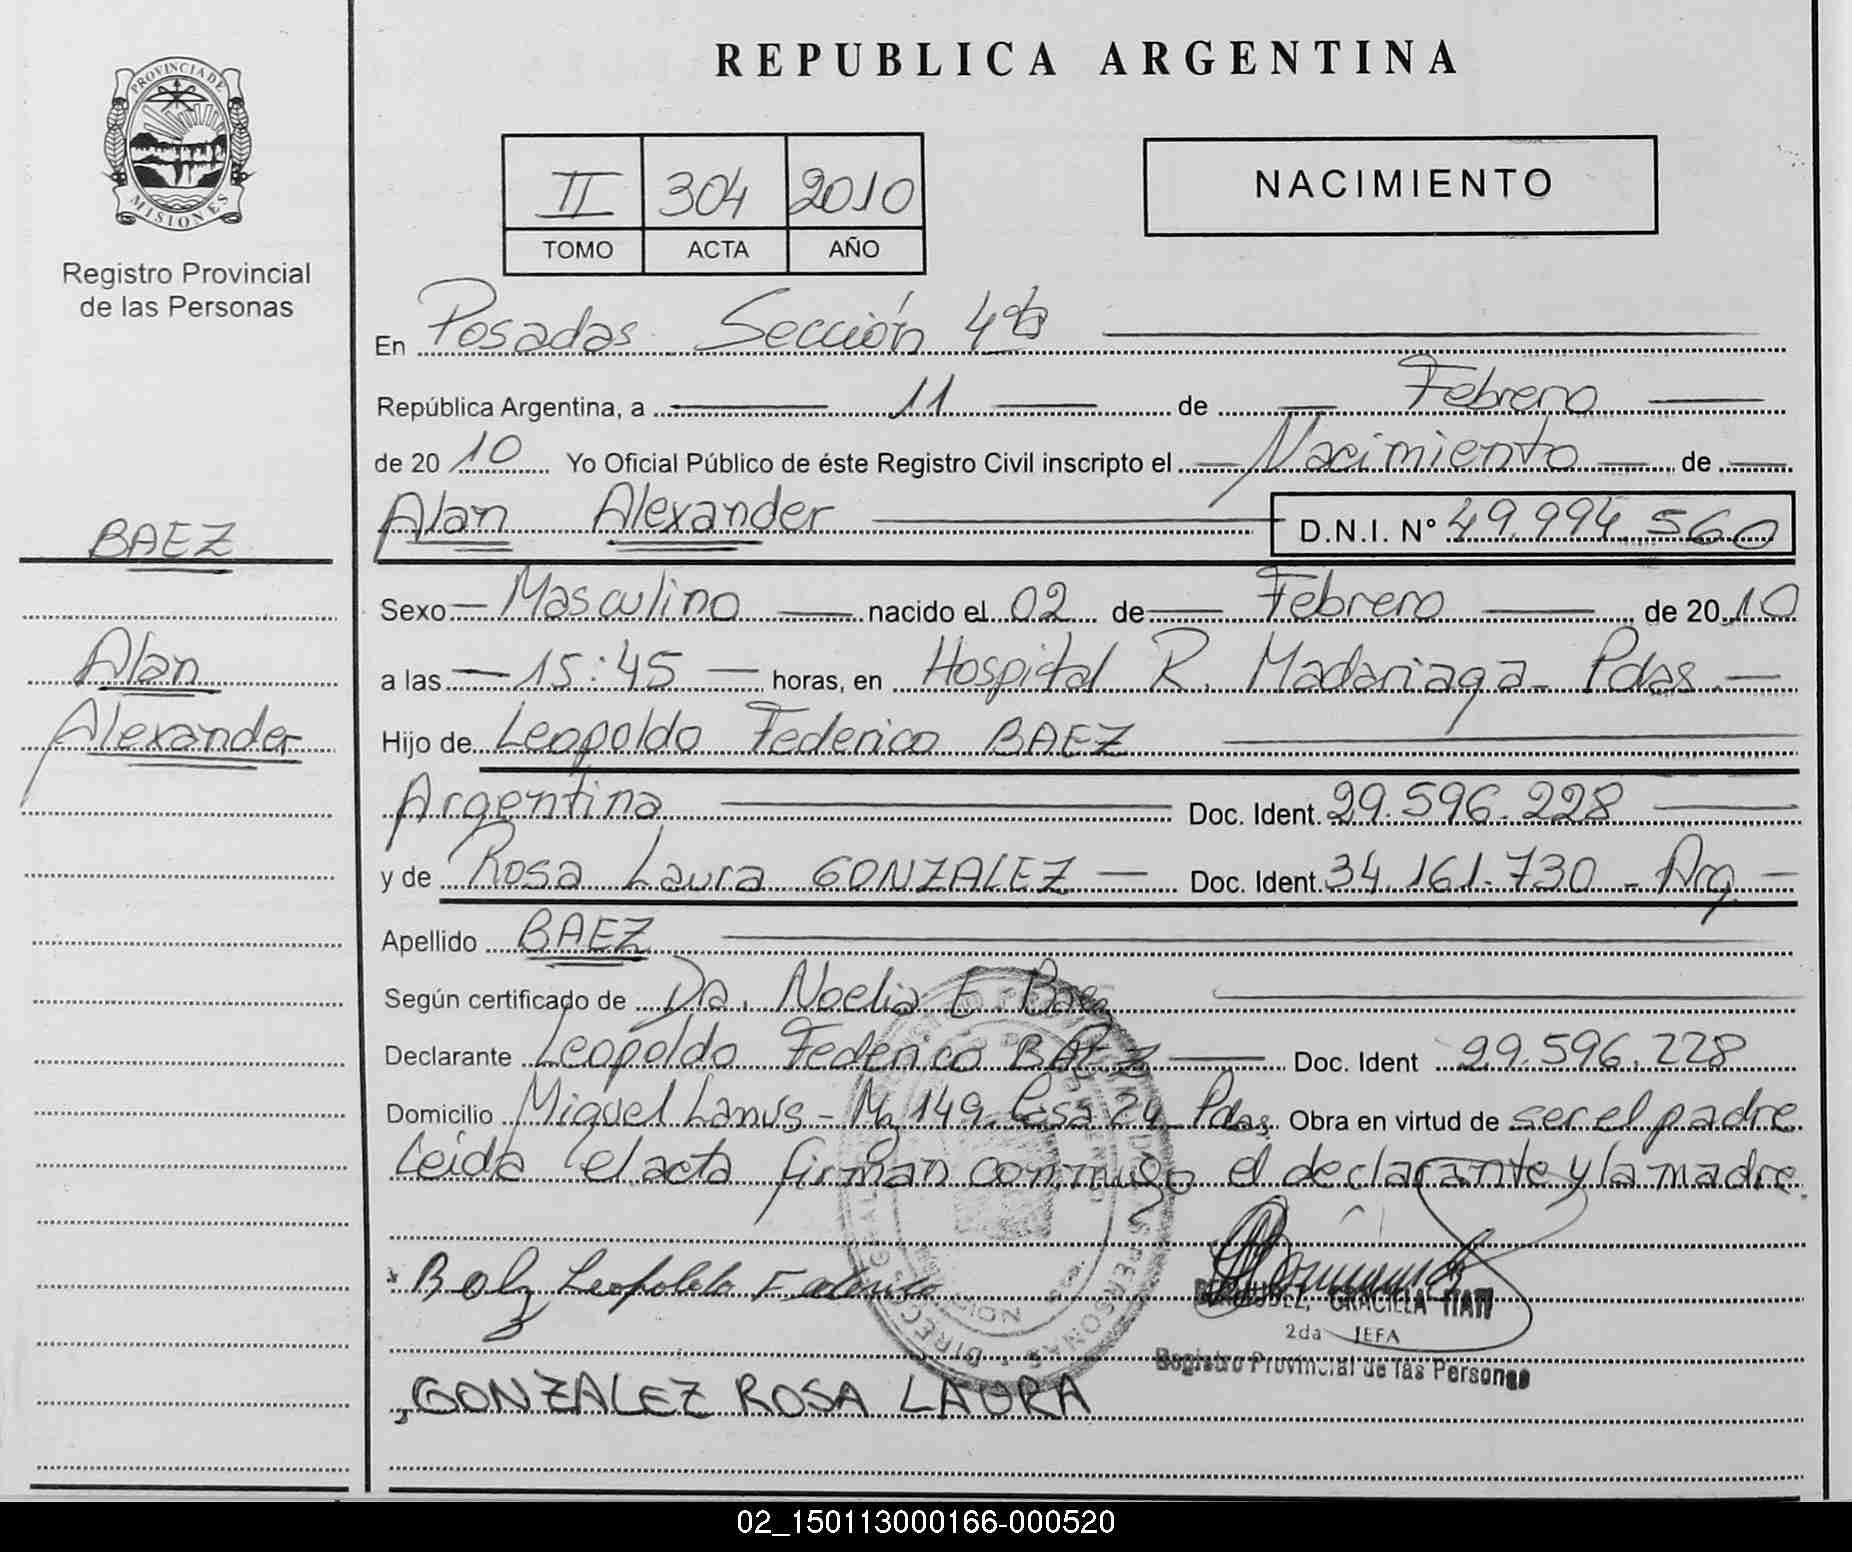 PROVINCIA DE
MISIONES
Registro Provincial
de las Personas
REPUBLICA ARGENTINA
II 304 2010
TOMO ACTA AÑO
NACIMIENTO
En Posadas Sección 4ta
República Argentina, a 11 de Febrero
de 20 10 Yo Oficial Público de éste Registro Civil inscripto el Nacimiento de
Alan Alexander D.N.I. N° 49.994.560
BAEZ
Alan
Alexander
Sexo Masculino nacido el 02 de Febrero de 20 10
a las 15:45 horas, en Hospital R. Madariaga - Pdas.
Hijo de Leopoldo Federico BAEZ
Argentina Doc. Ident. 29.596.228
y de Rosa Laura GONZALEZ Doc. Ident. 34.161.730 - Arg.
Apellido BAEZ
Según certificado de Dra. Noelia E. Baez
Declarante Leopoldo Federico BAEZ Doc. Ident 29.596.228
Domicilio Miguel Lanús - Mz 149 Casa 24 Pdas. Obra en virtud de ser el padre
Leída el acta firman conmigo el declarante y la madre.
Baez Leopoldo Federico
BERMUDEZ, GRACIELA ITATI
2da JEFA
Registro Provincial de las Personas
GONZALEZ ROSA LAURA
02_150113000166-000520